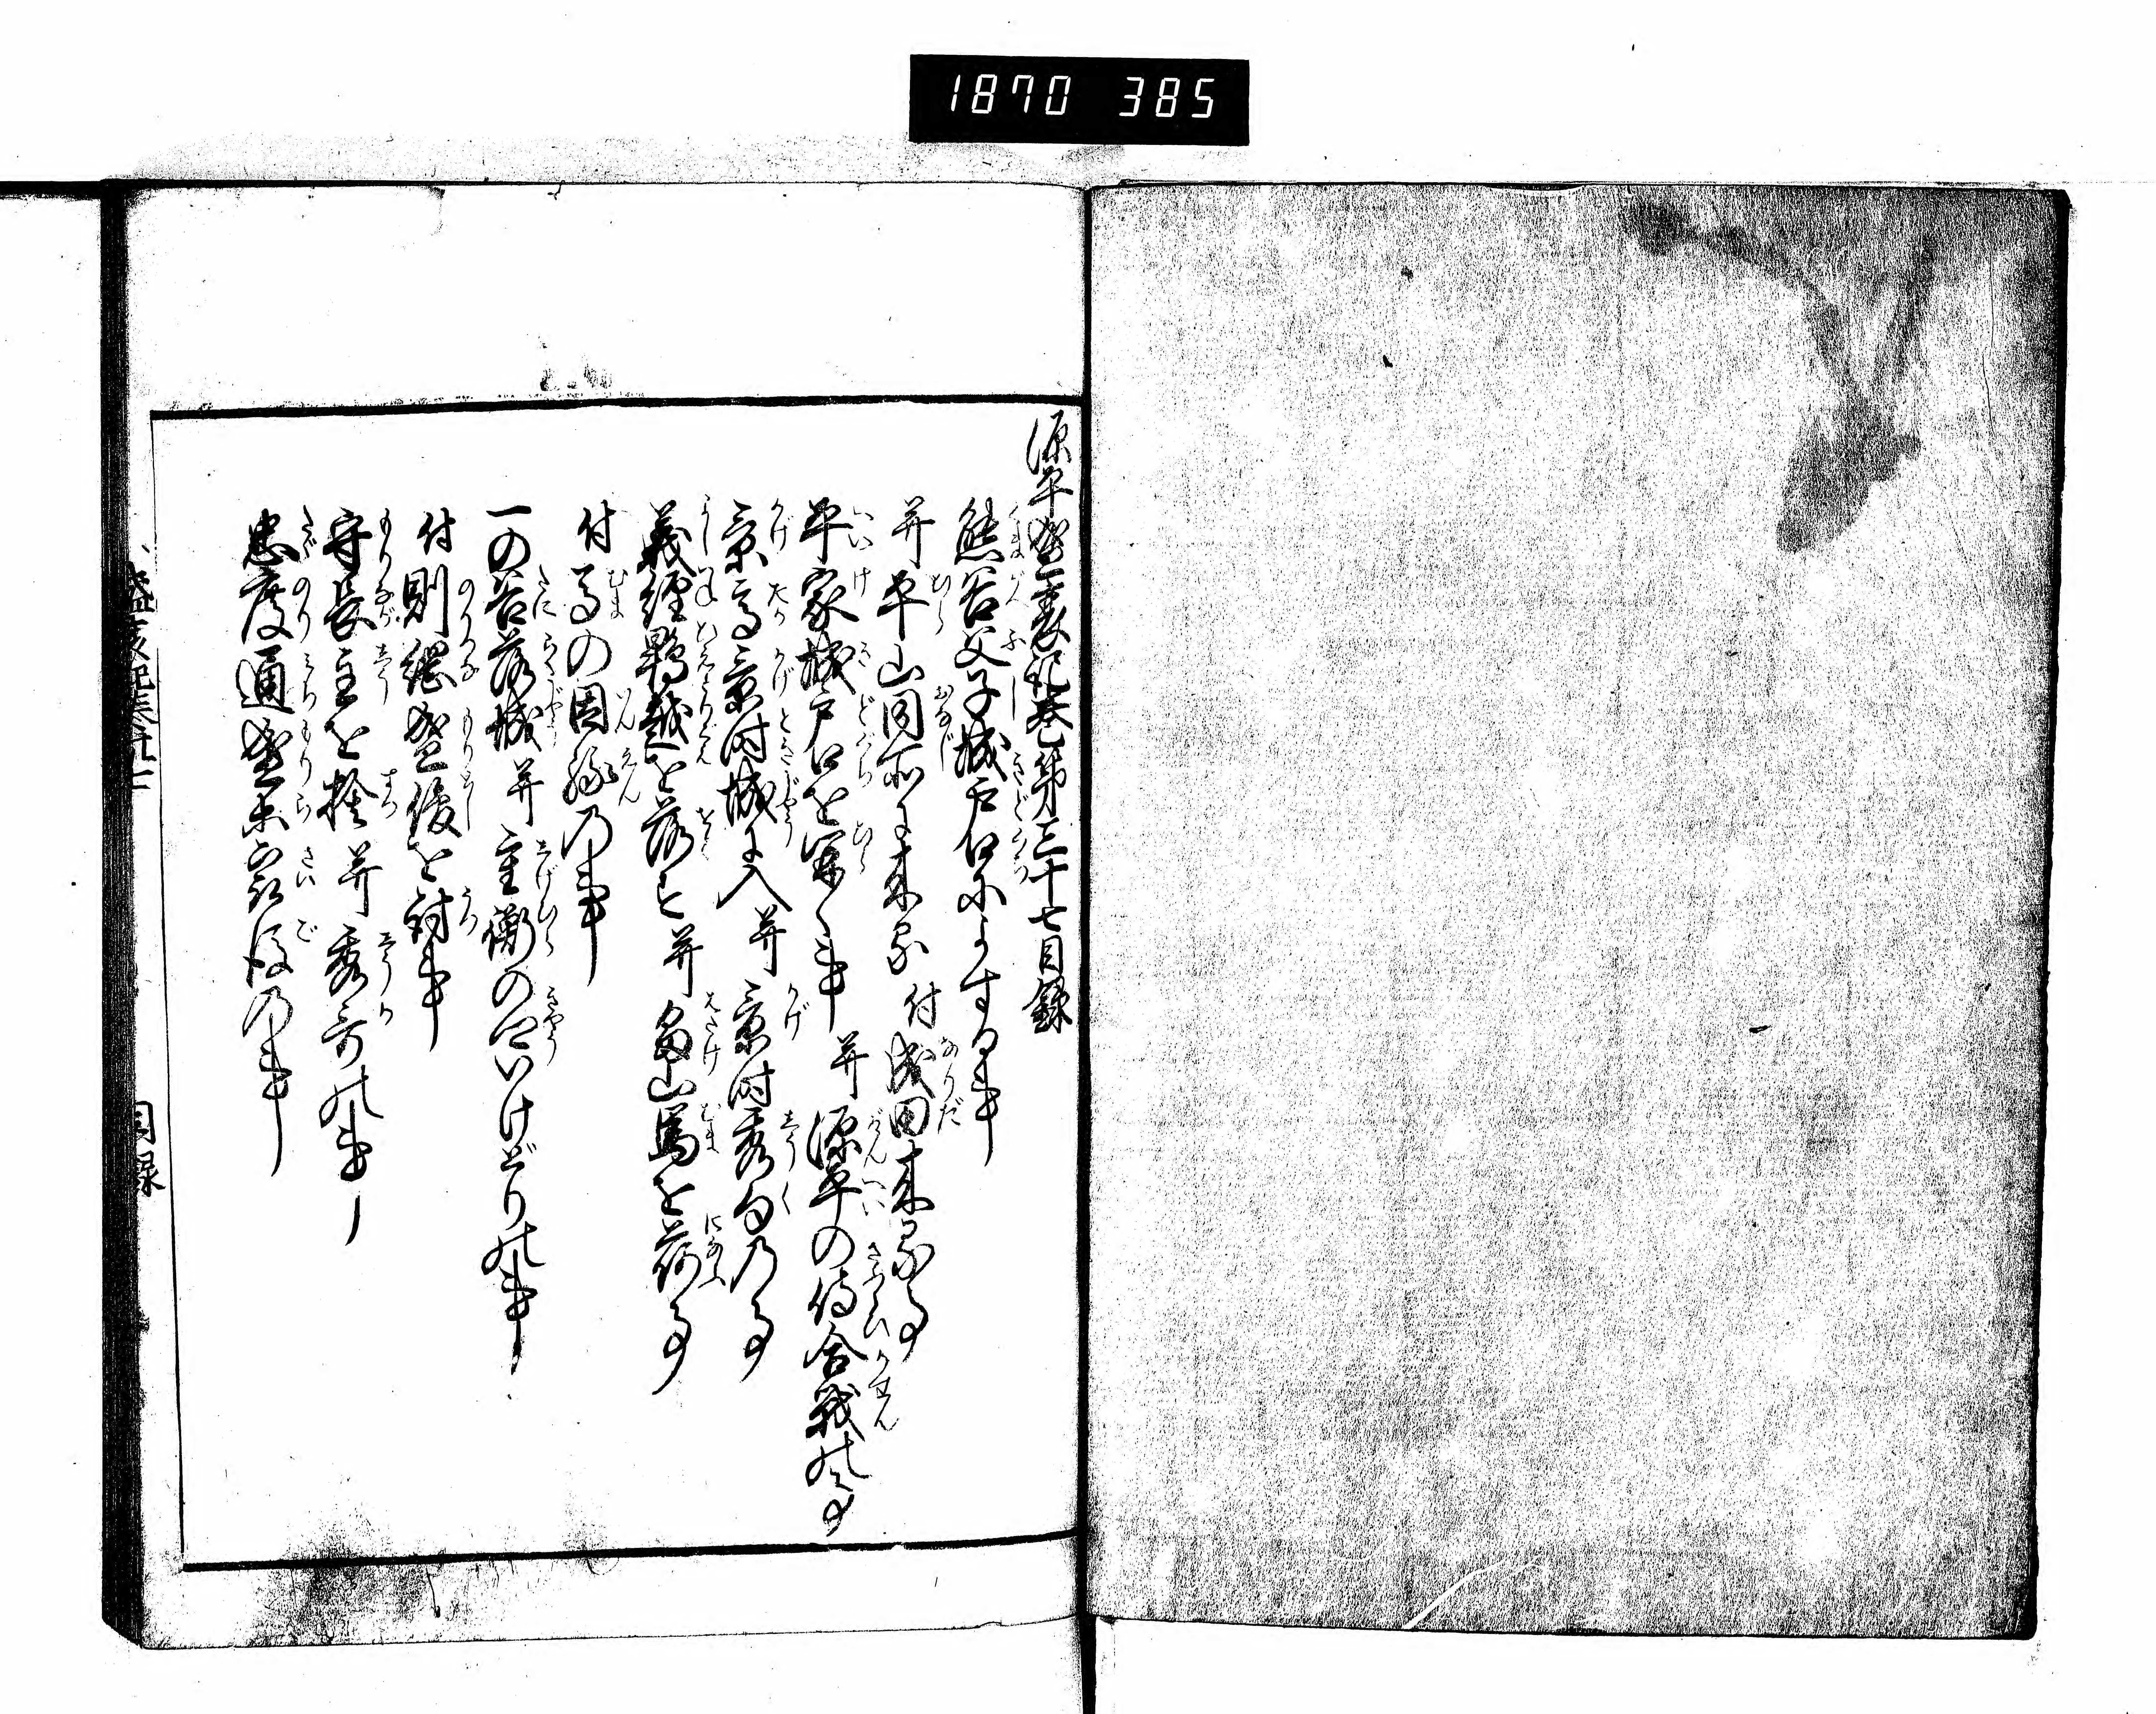 1870 385
源平盛衰記巻第三十七目録
熊谷父子城戸口によする事
并平山同所に来る 付成田来る事
平家城戸口を開く事 并源平の侍合戦の事
景高景時城に入 并景時秀句の事
義経鵯越を落す 并畠山馬を荷事
付馬の因縁の事
一の谷落城 并重衡の卿いけどりの事
付則綱盛俊を討事
守長主を捨 并秀哥の事
忠度通盛等最後の事
目録